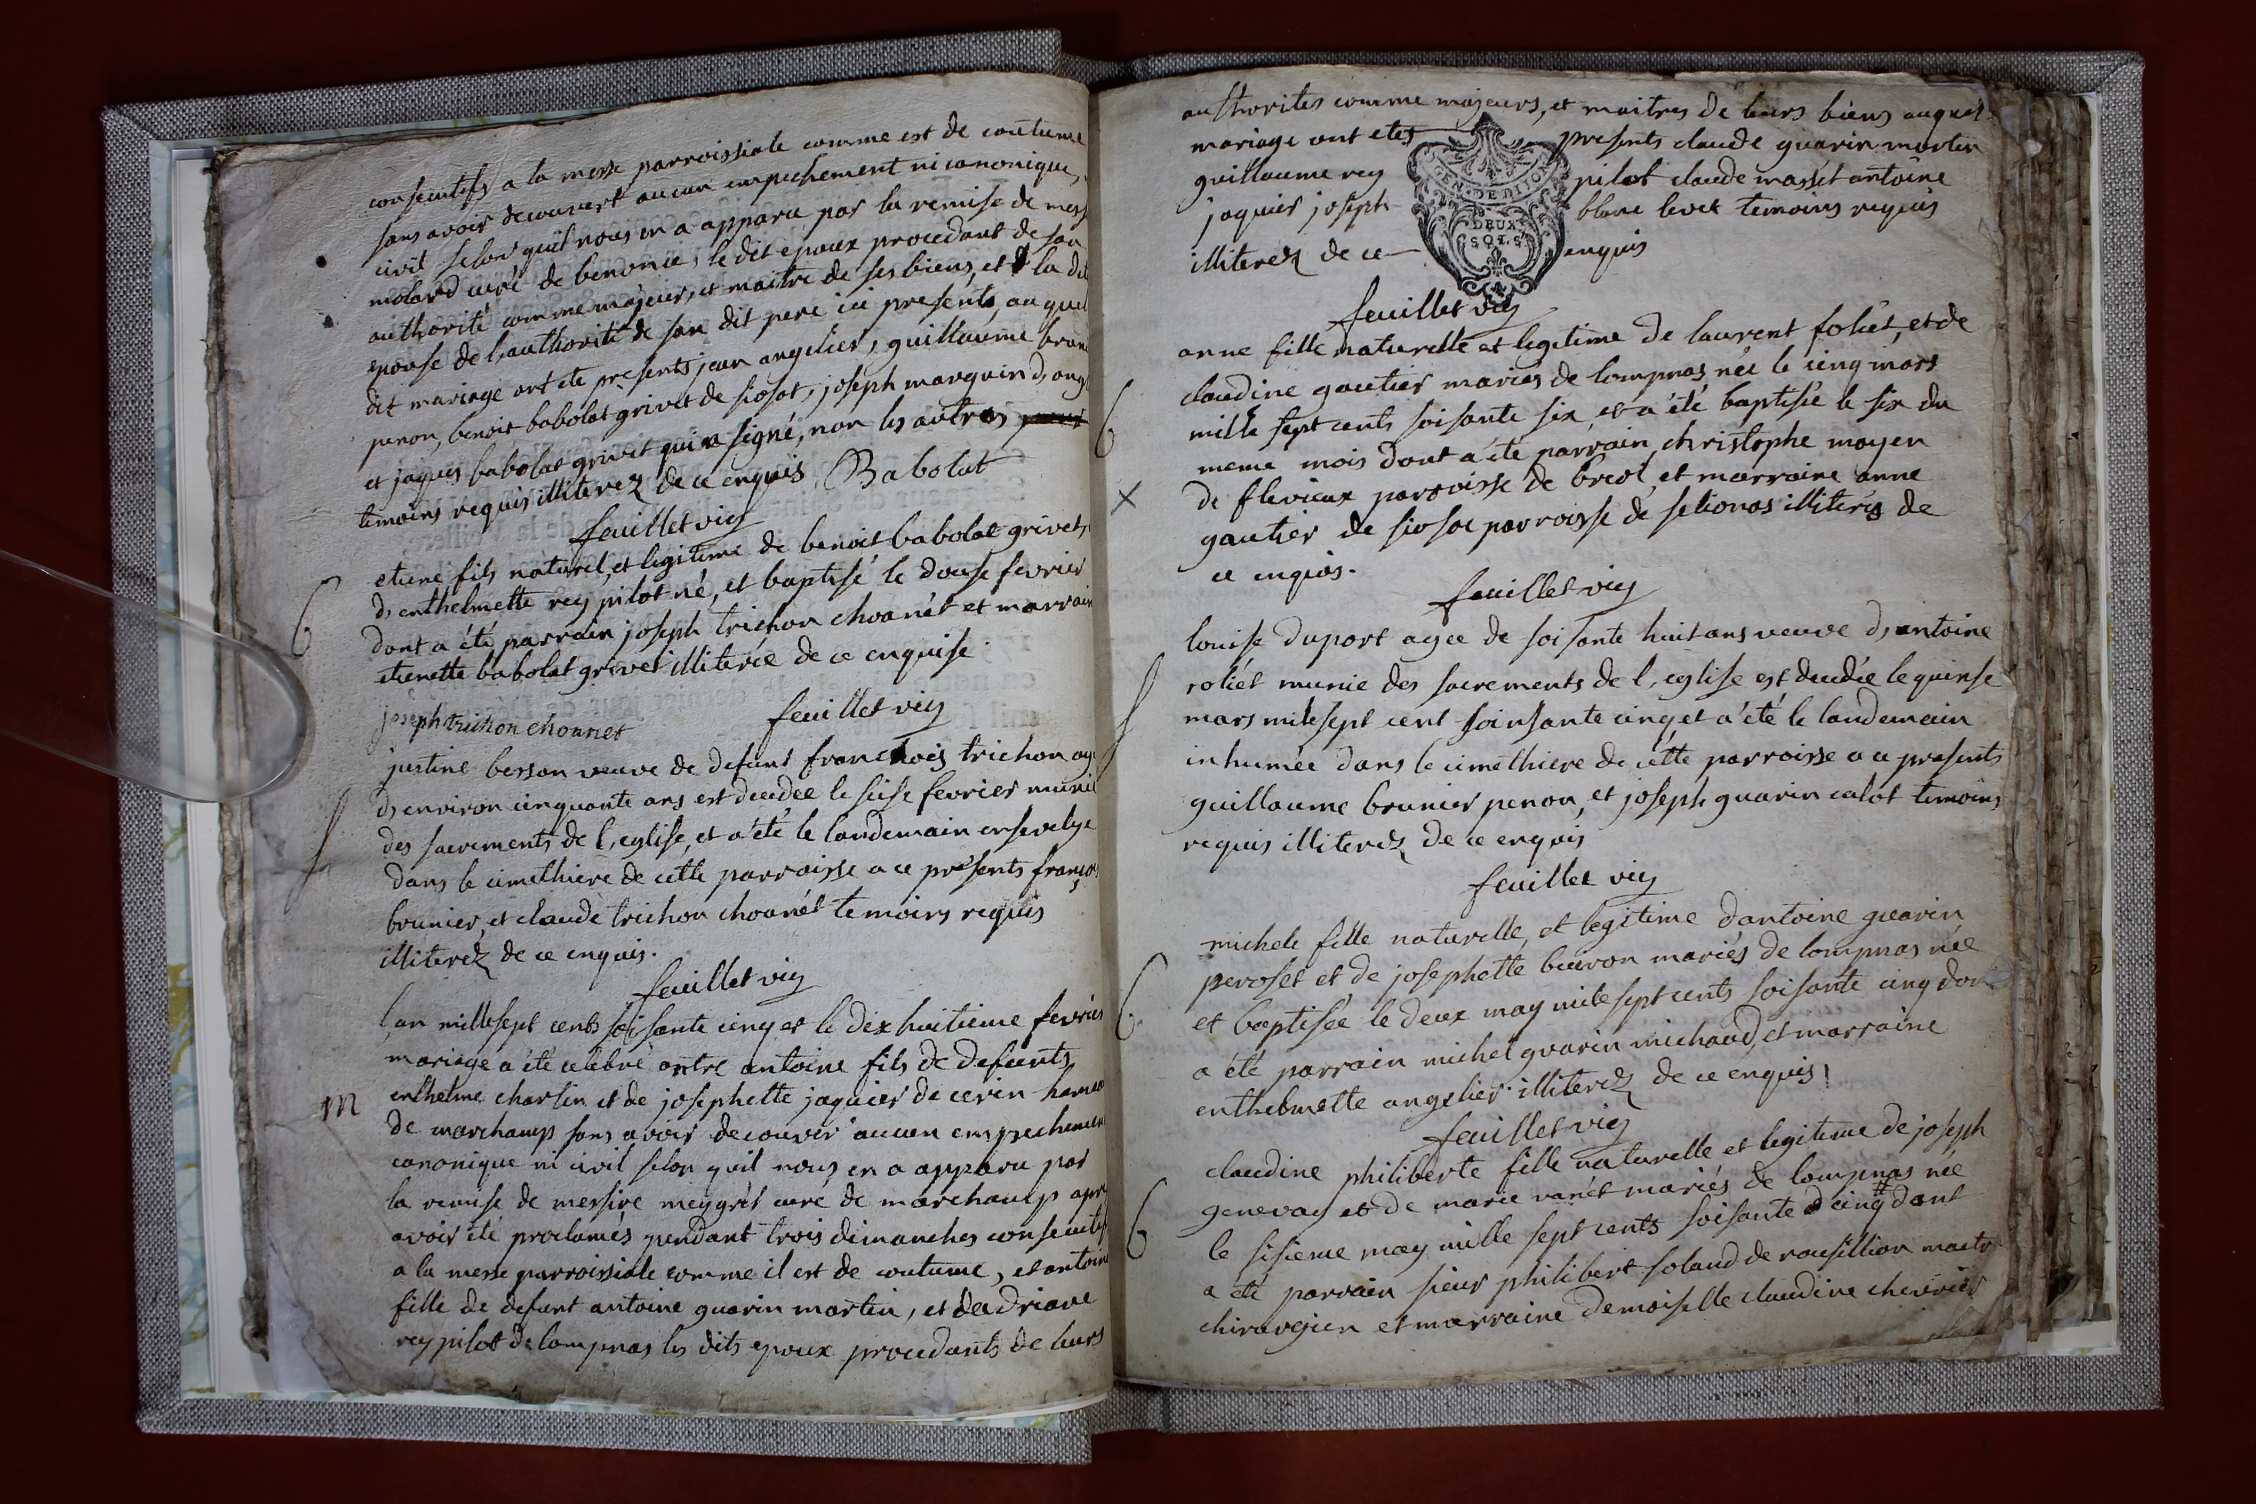 consecutifs a la messe parroissiale comme est de coutume
sans avoir decouvert aucun empechement ni canonique,
civil selon quil nous en a apparu par la remise de mess
molard curé de benonce, le dit epoux procedant de son
authorité comme majeur, et maitre de ses biens, et la dit
epouse de l,authorité de son dit pere ici present, au quel
dit mariage ont ete presents jean angelier, guillaume brun
penon, benoit babolat grivet de siosot, joseph marguin d, ang
et jaques babolat grivet qui a signé, non les autres
temoins requis illiterez de ce enquis Babolat
feuillet vicj
etiene fils naturel, et legitime de benoit babolat grivet,
d, enthelmette rey pilot né, et baptisé le douse fevrier
dont a été parrain joseph trichon choanét et marrain
etienette babolat grivet illiterée de ce enquise.
joseph trichon chouanet
feuillet vicj
justine berson veuve de defunt francois trichon ag
d, environ cinquante ans est decedee le seise fevrier muni
des sacrements de l,eglise, et a'été le landemain ensevelye
dans le cimethiere de cette parroisse a ce présents françois
brunier, et claude trichon choanét temoins requis
illiterez de ce enquis.
feuillet vicj
l,an millesept cents soisante cinq et le dix huitieme fevrier
m mariage a été celebré entre antoine fils de defunts
enthelme charlin et de josephette jaquier de cerin hamea
de marchamp sans avoir decouvér aucun empechement
canonique ni civil selon quil nous en a apparu par
la remise de messire meygrét curé de marchamp apre
avoir été proclamés pendant trois dimanches consecutif
a la messe parroissiale comme il est de coutume, et antoine
fille de defunt antoine guarin martin, et dadriane
rey pilot de lompnas les dits epoux procedants de leurs
authorites comme majeurs, et maitres de leurs biens auquel
mariage ont etes presents claude guarin martin
guillaume rey pilot claude massét antoine
jaquier joseph blanc levet temoins requis
illiterez de ce enquis
GEN. DE DIJON
DEUX
SOLS
feuillet vicj
anne fille naturelle et legitime de laurent foliét, et de
claudine gautier mariés de lompnas, née le cinq mars
mille sept cents soisante six et a'été baptisée le six du
meme mois dont a'été parrain christophe moyen
de flevieux parroisse de breol, et marraine anne
gautier de siosoc parroisse de selionas illiterés de
ce enquis.
feuillet vicj
louise duport agee de soisante huit ans veuve d, antoine
roliét munie des sacrements de l,eglise est decedée le quinse
mars mile sept cent soinsante cinq et a'été le landemain
inhumée dans le cimethiere de cétte parroisse a ce presents
guillaume brunier penon, et joseph guarin calot temoins
requis illiterez de ce enquis
feuillet vicj
michele fille naturelle, et legitime dantoine guarin
peroset et de josephette buevon mariés de lompnas née
et baptisée le deux may mile sept cents soisante cinq dont
a été parrain michel guarin michaud, et marraine
enthelmette angelier illiterez de ce enquis
feuillet vicj
claudine philiberte fille naturelle et legitime de joseph
genevay et de marie vanét mariés de lompnas née
le sisieme may mille sept cents soisante cinq dont
a été parrain sieur philibert soland de rousillion maitr
chirurgien et marraine demoiselle claudine chevrier